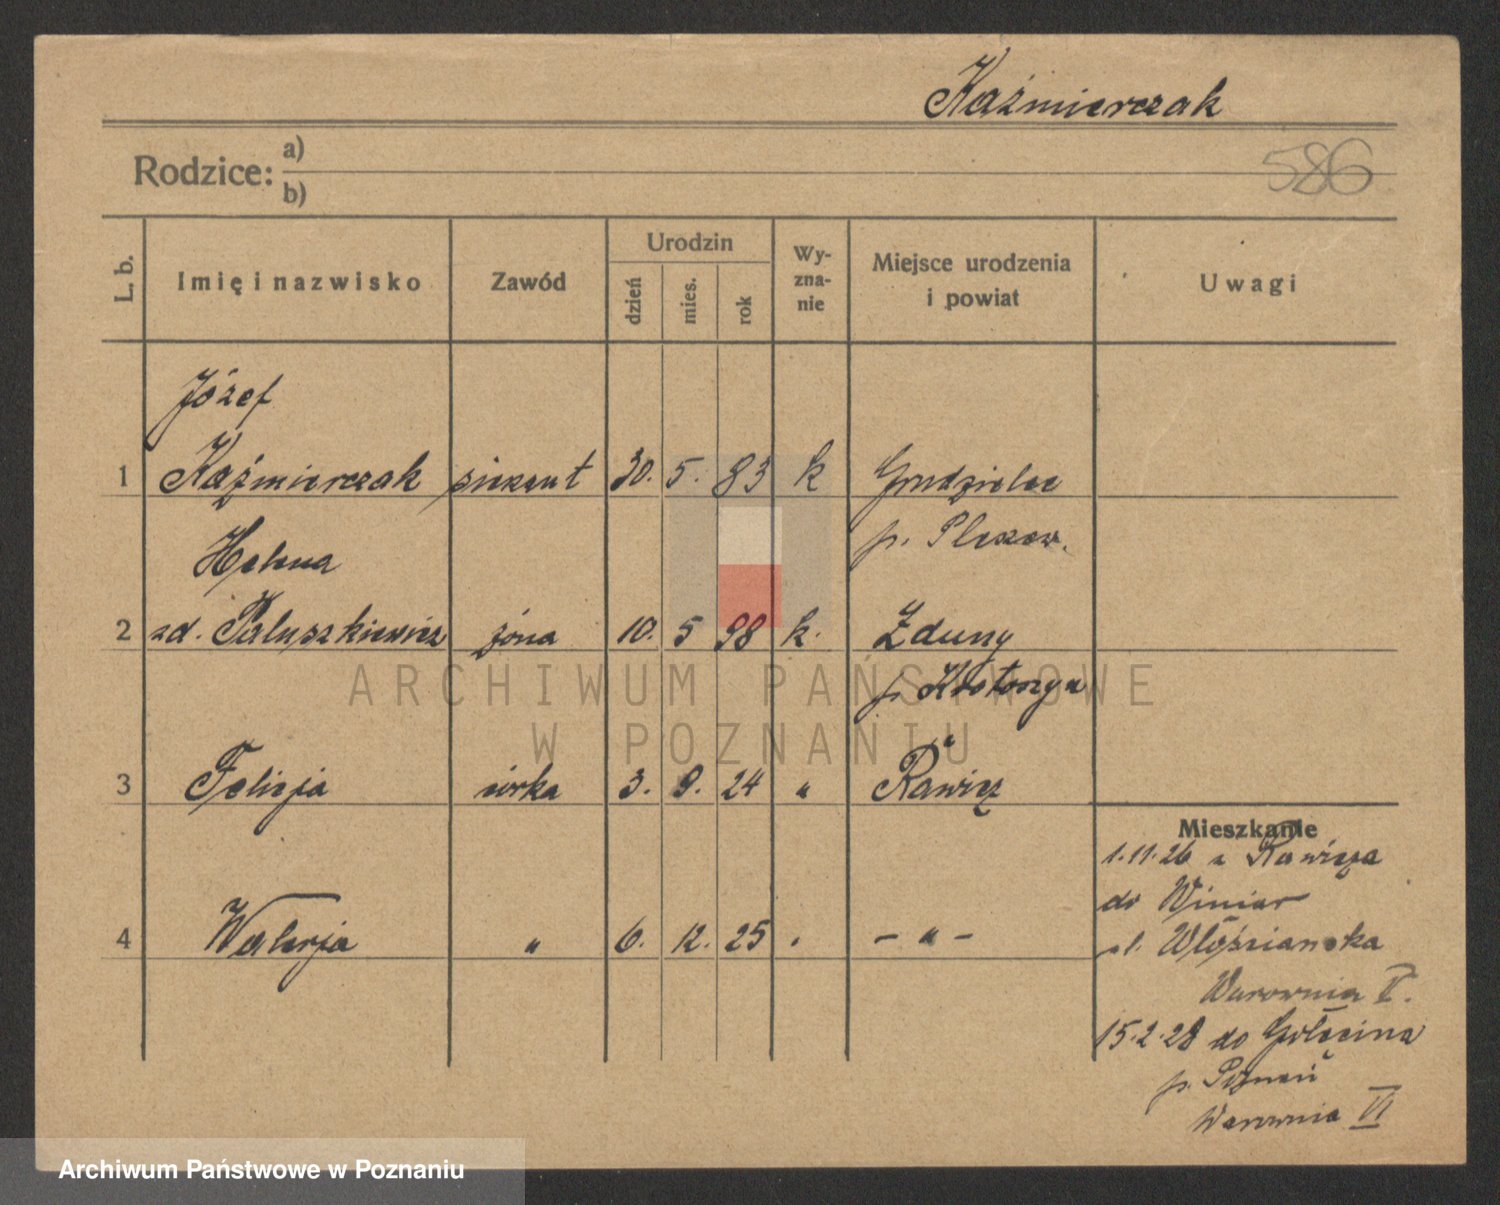 Kaźmierczak
Rodzice: a)
b)
586
L. b. Imię i nazwisko Zawód Urodzin dzień mies. rok Wyznanie Miejsce urodzenia i powiat Uwagi
Józef
1 Kaźmierczak 30. 5. 83 k Grudzielec
p. Pleszew.
Helena
2 zd. Paluszkiewicz żona 10. 5 98 k. Zduny
p. Krotoszyn
3 Felicja córka 3. 9. 24 " Rawicz
Mieszkanie
1.11.26 z Rawicza
do Winiar
4 Walerja " 6. 12. 25 " – " –
ul. Włościańska
Warownia V.
15.2.28 do Golęcina
p. Poznań
Warownia VI
ARCHIWUM PAŃSTWOWE
W POZNANIU
Archiwum Państwowe w Poznaniu